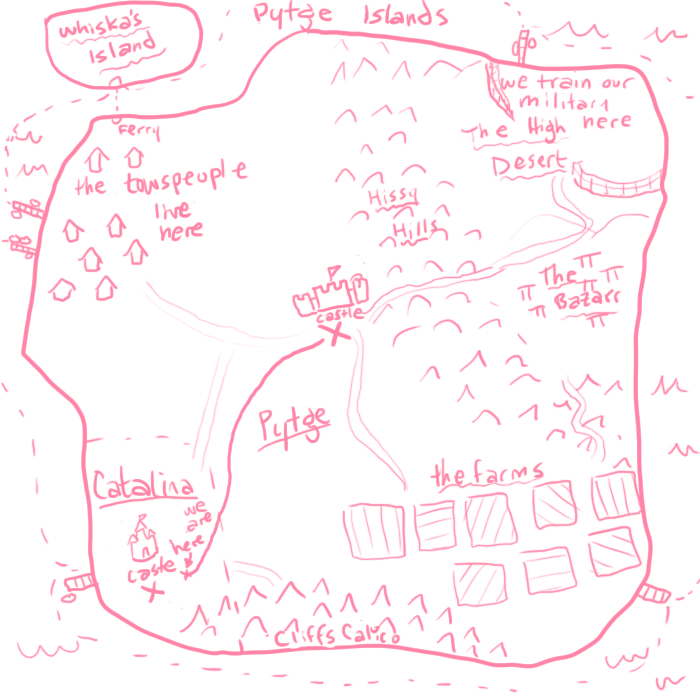 Pytge Islands
Whiska's
Island
Ferry
we train our
military
here
The High
Desert
the townspeuple
live
here
Hissy
Hills
The
Bazarr
castle
Pytge
the farms
Catalina
we
are
here
caste
Cliffs Calico